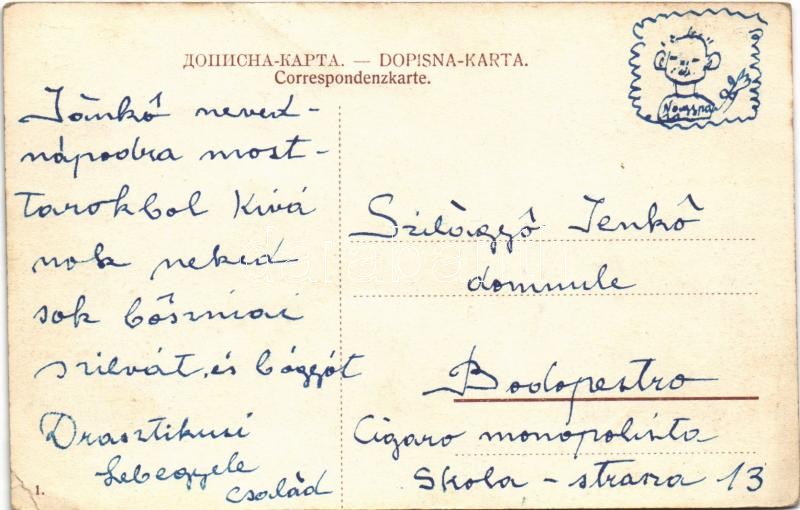 ДОПИСНА-КАРТА. — DOPISNA-KARTA.
Correspondenzkarte.
Jánkó neved-
nápodra most-
tarokbol Kivá
nok neked
sok bőszniai
szilvát, és bággyót
Drasztikusi
hebegyele
család
1.
Szilággyő Jenkő
domnule
Bodopestro
Cigaro monopolista
Skola - strasza 13